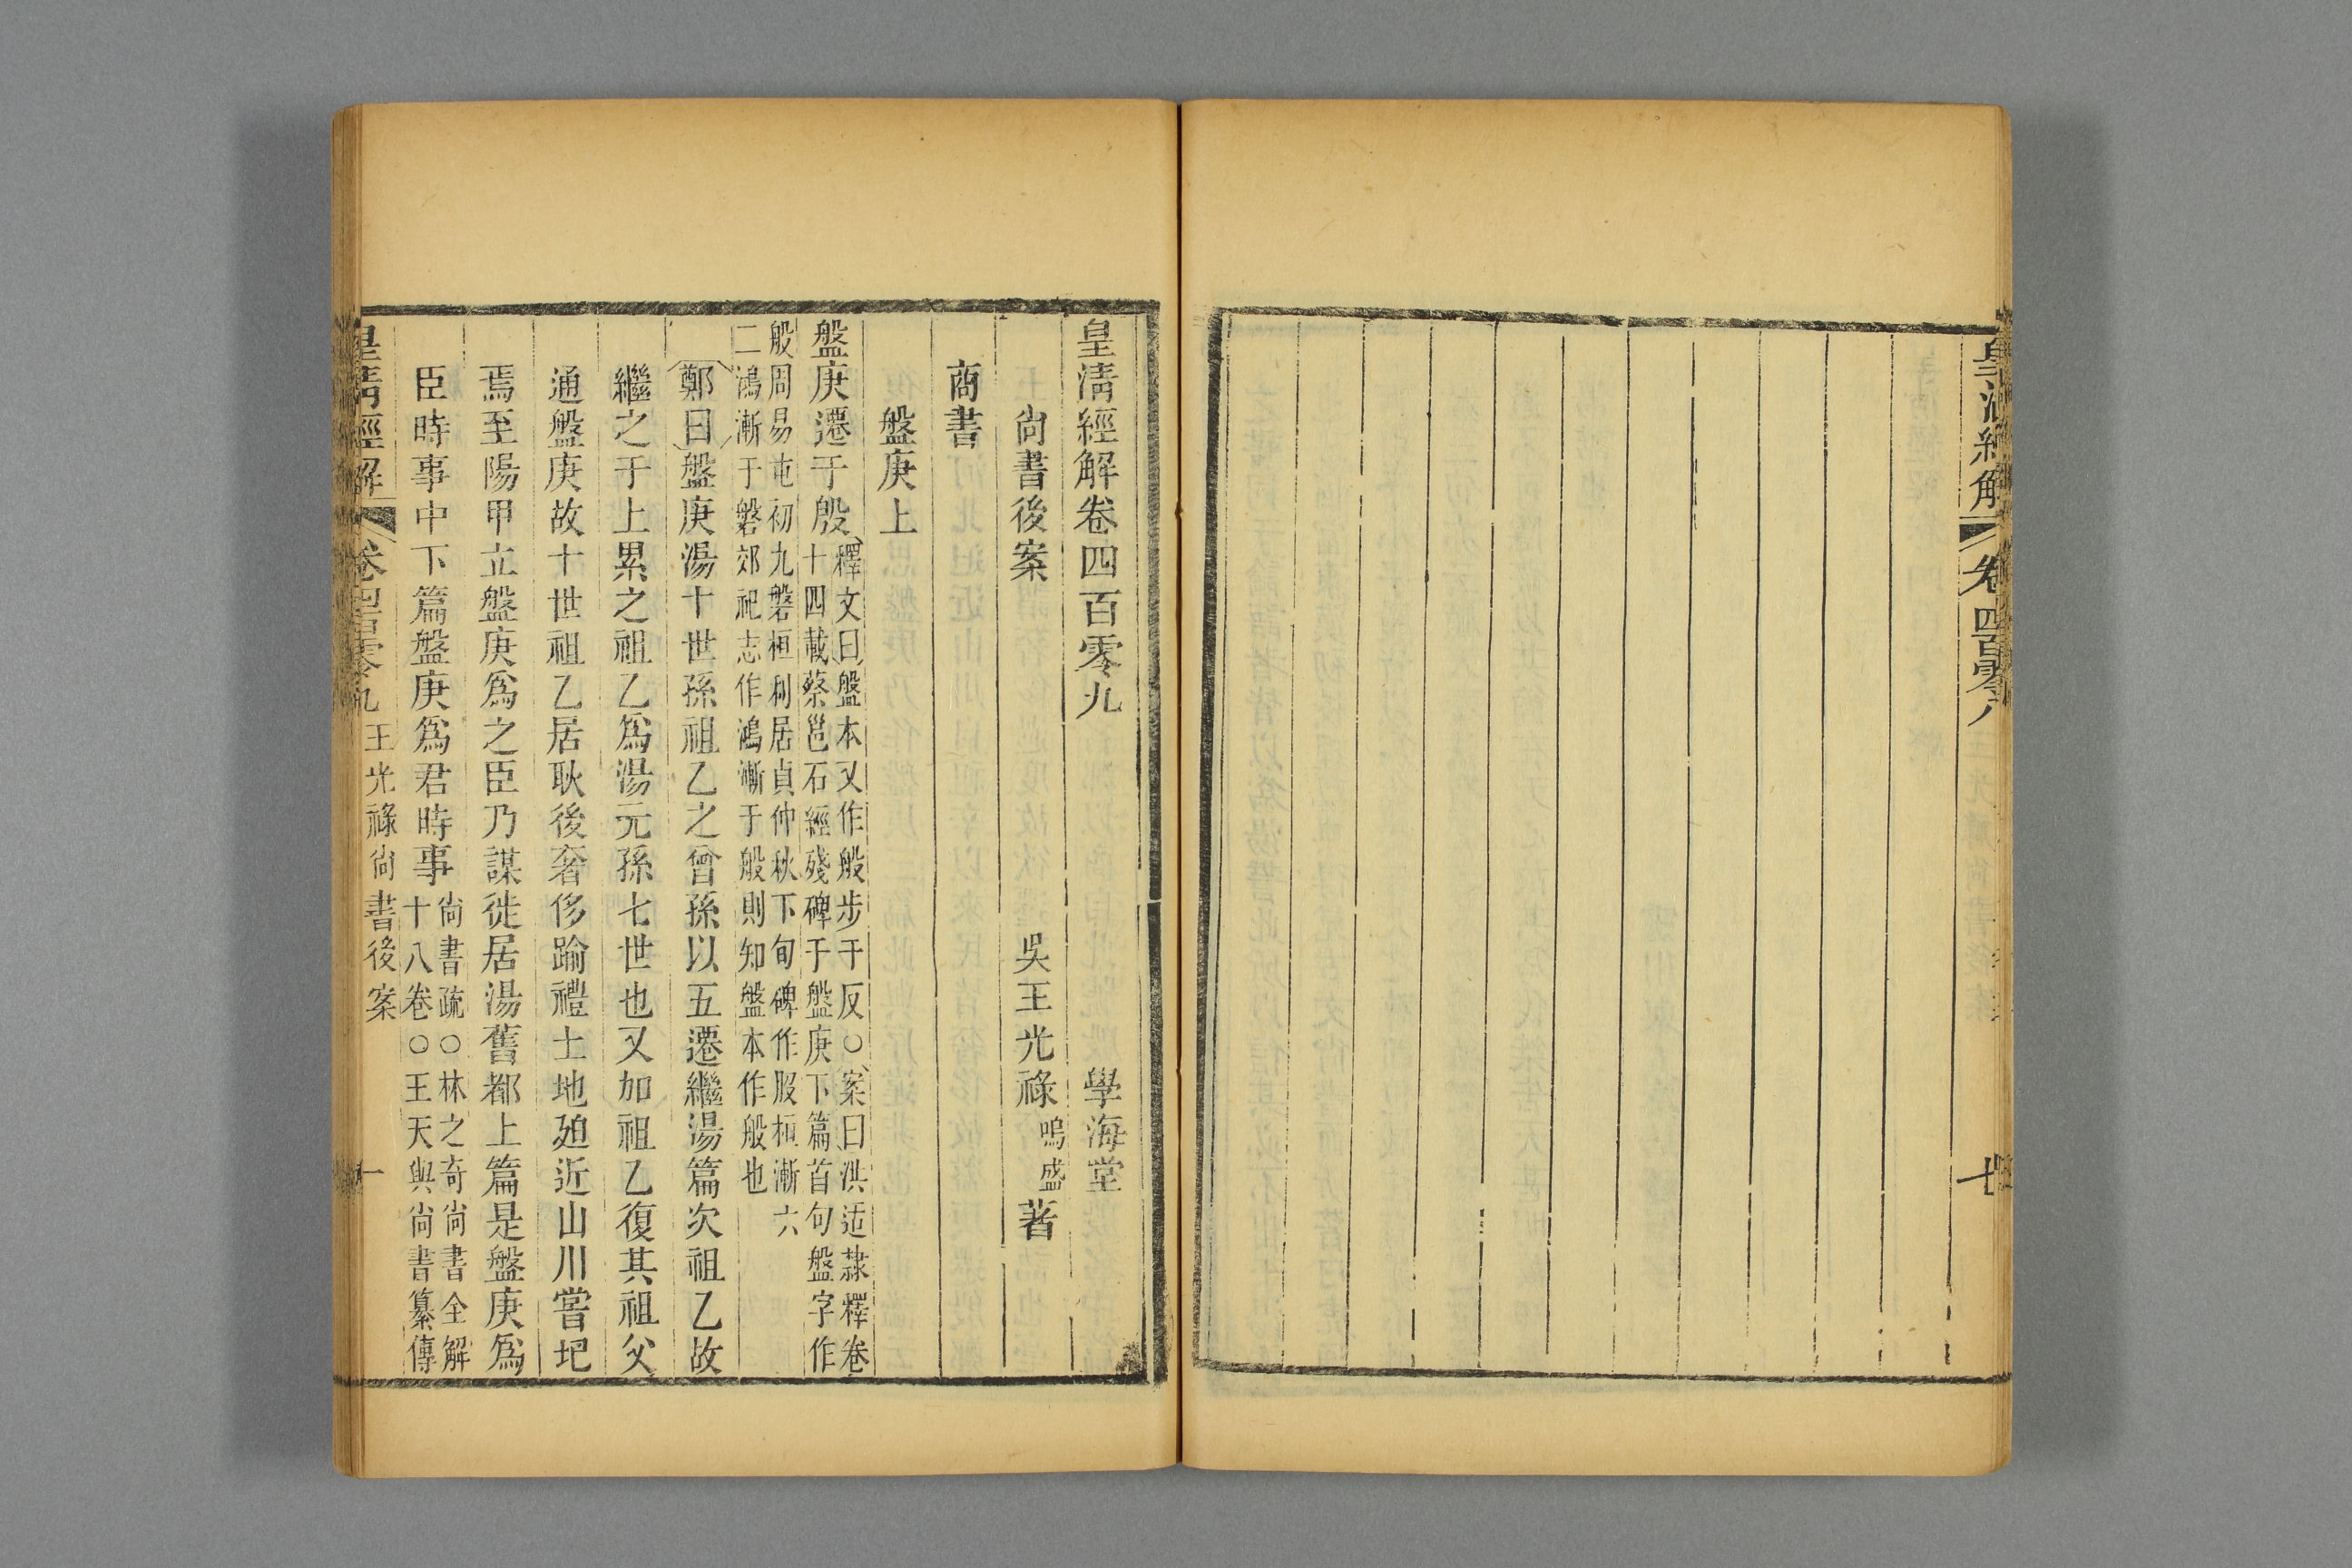 皇清經解 卷四百零八
皇清經解卷四百零九 學海堂
尙書後案 吳王光祿鳴盛著
商書
盤庚上
盤庚遷于殷釋文曰盤本又作般步干反○案曰洪适隸釋卷
十四載蔡邕石經殘碑于盤庚下篇首句盤字作
般周易屯初九磐桓利居貞仲秋下旬碑作般桓漸六
二鴻漸于磐郊祀志作鴻漸于般則知盤本作般也
鄭曰盤庚湯十世孫祖乙之曾孫以五遷繼湯篇次祖乙故
繼之于上累之祖乙爲湯元孫七世也又加祖乙復其祖父
通盤庚故十世祖乙居耿後奢侈踰禮土地廹近山川嘗圯
焉至陽甲立盤庚爲之臣乃謀徙居湯舊都上篇是盤庚爲
臣時事中下篇盤庚爲君時事尙書疏○林之奇尙書全解
十八卷○王天與尙書纂傳
皇淸經解 卷四百零九 王光祿尙書後案 一